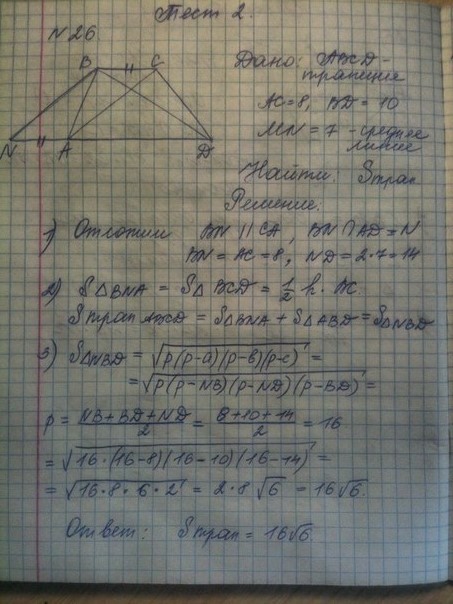 Тест 2.
№26
B C
N A D
Дано: ABCD -
трапеция
AC=8, BD = 10
MN = 7 - среднее
линия
Найти: Sтрап
Решение:
1) Отложим BN || CA, BN ∩ AD = N
BN = AC = 8, ND = 2·7 = 14
2) S△BNA = S△BCD = 1/2 h · BC
Sтрап ABCD = S△BNA + S△ABD = S△NBD
3) S△NBD = √p(p-a)(p-b)(p-c) =
= √p(p-NB)(p-ND)(p-BD) =
p = NB+BD+ND/2 = 8+10+14/2 = 16
= √16·(16-8)(16-10)(16-14) =
= √16·8·6·2 = 2·8√6 = 16√6.
Ответ: Sтрап = 16√6.